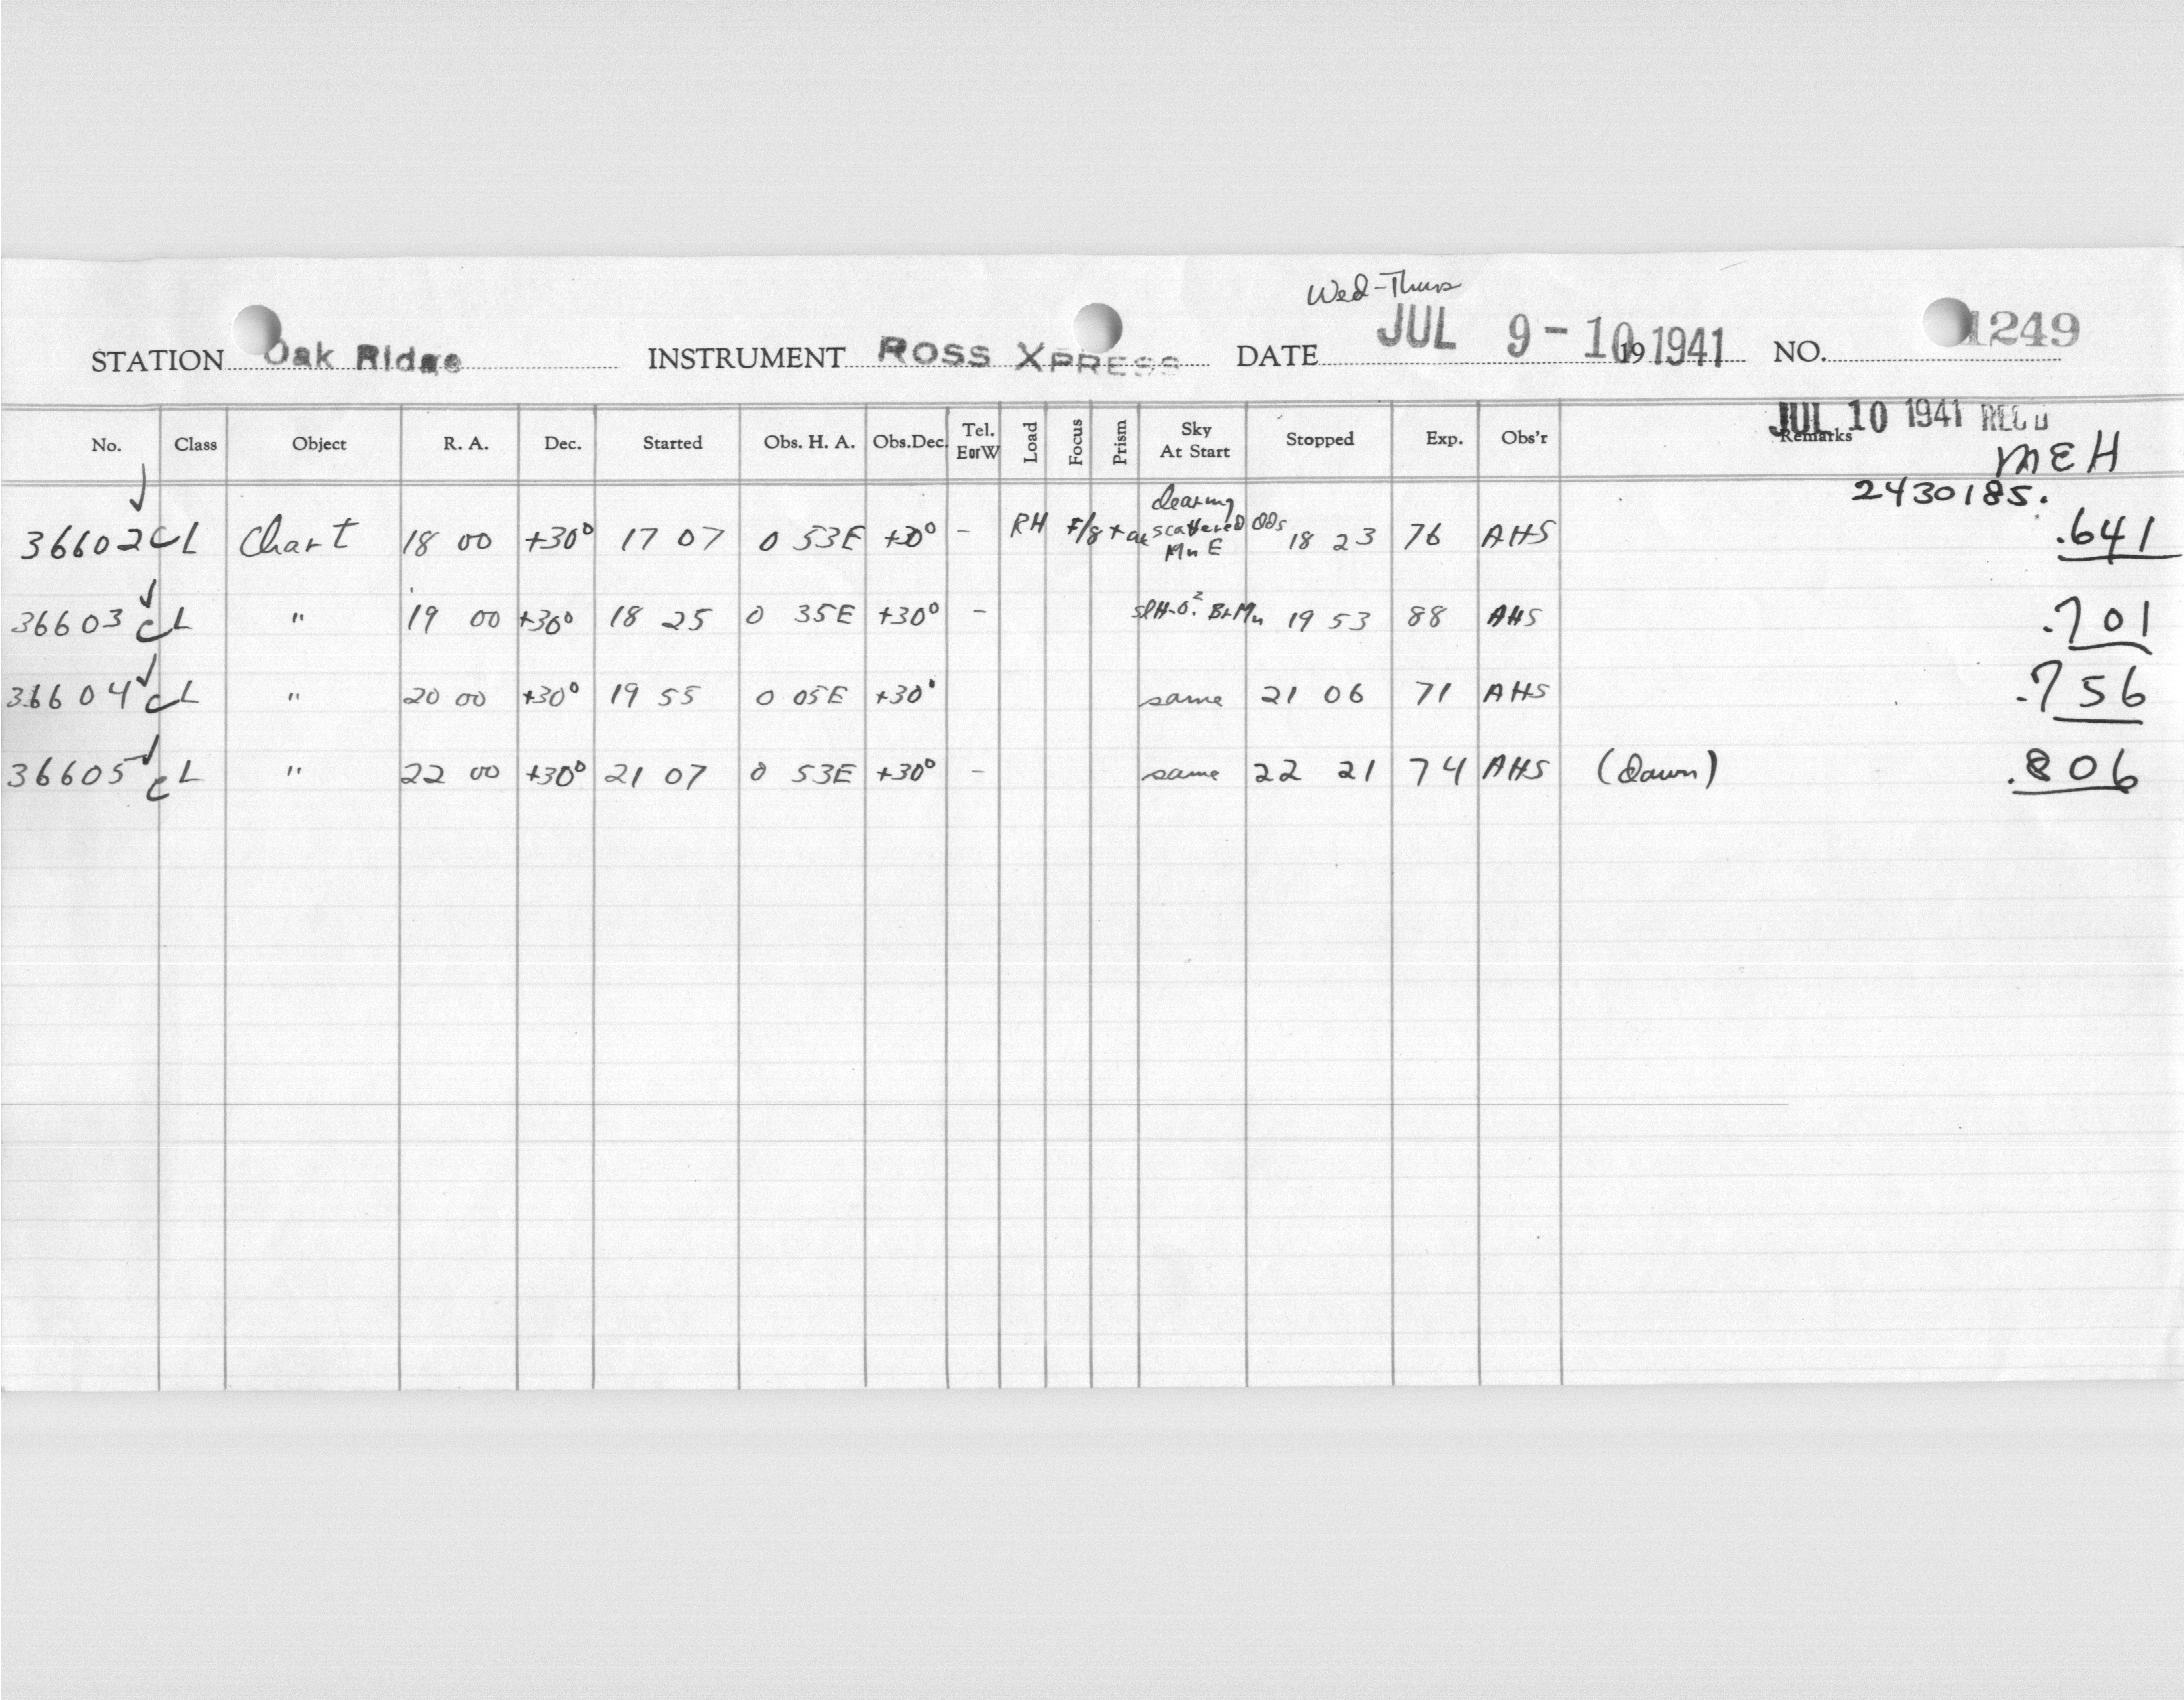 Wed-Thurs
STATION Oak Ridge INSTRUMENT ROSS XPRESS DATE JUL 9-10 19 1941 NO. 1249
JUL 10 1941 REC'D
No. Class Object R. A. Dec. Started Obs. H. A. Obs.Dec. Tel. E or W Load Focus Prism Sky At Start Stopped Exp. Obs'r Remarks
MEH
2430185.
36602 CL Chart 18 00 +30° 17 07 0 53E +30° - RH F/8 clearing scattered Mn E 18 23 76 AHS .641
36603 CL " 19 00 +30° 18 25 0 35E +30° - 19 53 88 AHS .701
36604 CL " 20 00 +30° 19 55 0 05E +30° same 21 06 71 AHS .756
36605 CL " 22 00 +30° 21 07 0 53E +30° - same 22 21 74 AHS (Dawn) .806